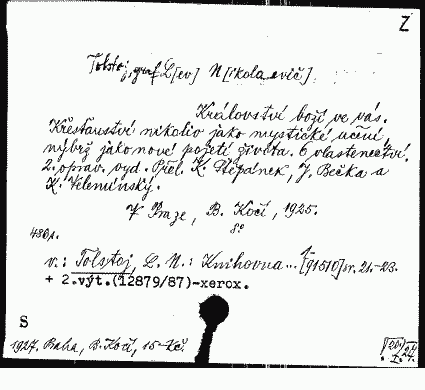 Z
Tolstoj, graf L[ev] N[ikolaevič].
Království boží ve vás.
Křesťanství nikoliv jako mystické učení,
nýbrž jako nové pojetí života. O vlastenectví.
2. oprav. vyd. Přel. K. Štěpánek, J. Bečka a
K. Velemínský.
V Praze, B. Kočí, 1925.
8°
480 s.
v.: Tolstoj, L. N.: Knihovna... [91510] sv. 21.-23.
+ 2.výt.(12879/87)-xerox.
S
1927. Praha, B. Kočí, 15-Kč.